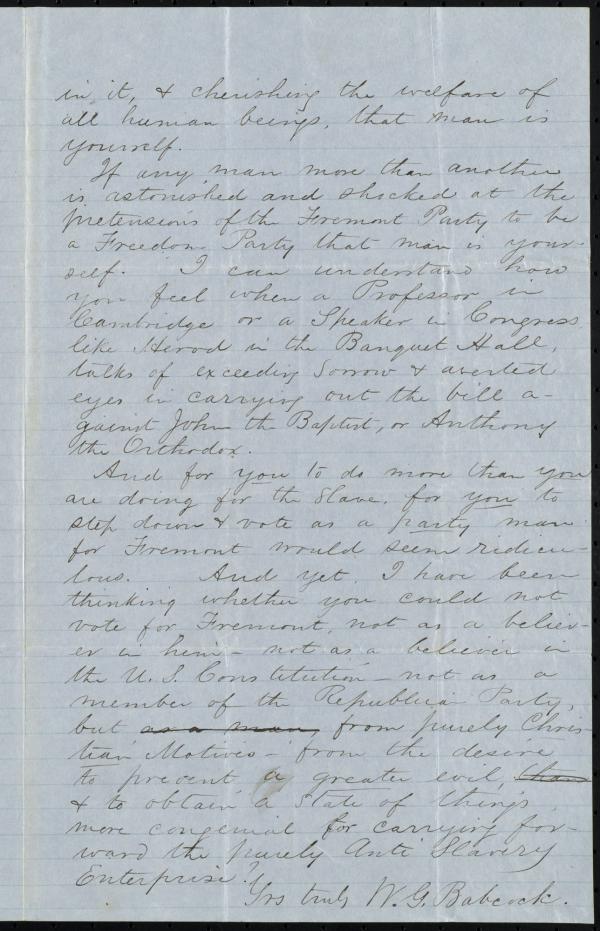 in it, & cherishing the welfare of
all human beings, that man is
yourself.
If any man more than another
is astonished and shocked at the
pretensions of the Fremont Party to be
a Freedom Party that man is your-
self. I can understand how
you feel when a Professor in
Cambridge or a Speaker in Congress
like Herod in the Banquet Hall,
talks of exceeding Sorrow & averted
eyes in carrying out the bill a-
gainst John the Baptist, or Anthony
the Orthodox.
And for you to do more than you
are doing for the Slave, for you to
step down & vote as a party man
for Fremont would seem ridicu-
lous. And yet, I have been
thinking whether you could not
vote for Fremont, not as a believ-
er in him - not as a believer in
the U.S. Constitution - not as a
member of the Republican Party,
but as a man, from purely Chris-
tian Motives - from the desire
to prevent a greater evil, than
& to obtain a State of things
more congenial for carrying for-
ward the purely Anti Slavery
Enterprise!
Yrs truly W. G. Babcock.